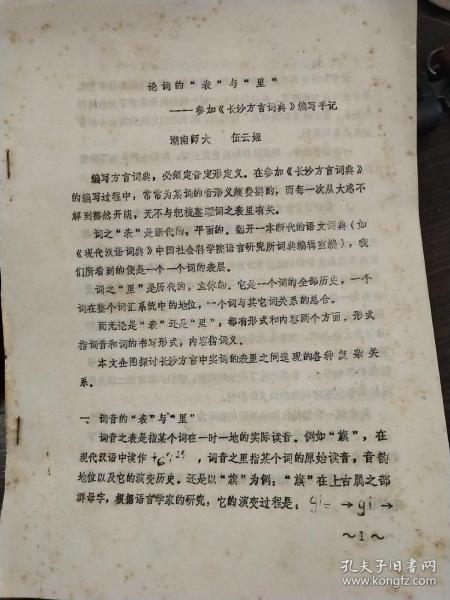 论词的“表”与“里”
——参加《长沙方言词典》编写手记
湖南师大 伍云姬
编写方言词典，必须定音定形定义。在参加《长沙方言词典》
的编写过程中，常常为某词的音形义颇费斟酌，而每一次从大惑不
解到豁然开朗，无不与把梳整理词之表里有关。
词之“表”是断代的，平面的。翻开一本断代的语文词典（如
《现代汉语词典》中国社会科学院语言研究所词典编辑室编），我
们所看到的便是一个一个词的表层。
词之“里”是历代的，立体的。它是一个词的全部历史，一个
词在整个词汇系统中的地位，一个词与其它词关系的总合。
而无论是“表”还是“里”，都有形式和内容两个方面。形式
指词音和词的书写形式，内容指词义。
本文企图探讨长沙方言中实词的表里之间呈现的各种复杂关
系。
一 词音的“表”与“里”
词音之表是指某个词在一时一地的实际读音。例如“旗”，在
现代汉语中读作 ，词音之里指某个词的原始读音，音韵
地位以及它的演变历史。还是以“旗”为例：“旗”在上古属之部
群母字，根据语言学家的研究，它的演变过程是： → gi →
～1～
孔夫子旧书网
www.kongfz.com